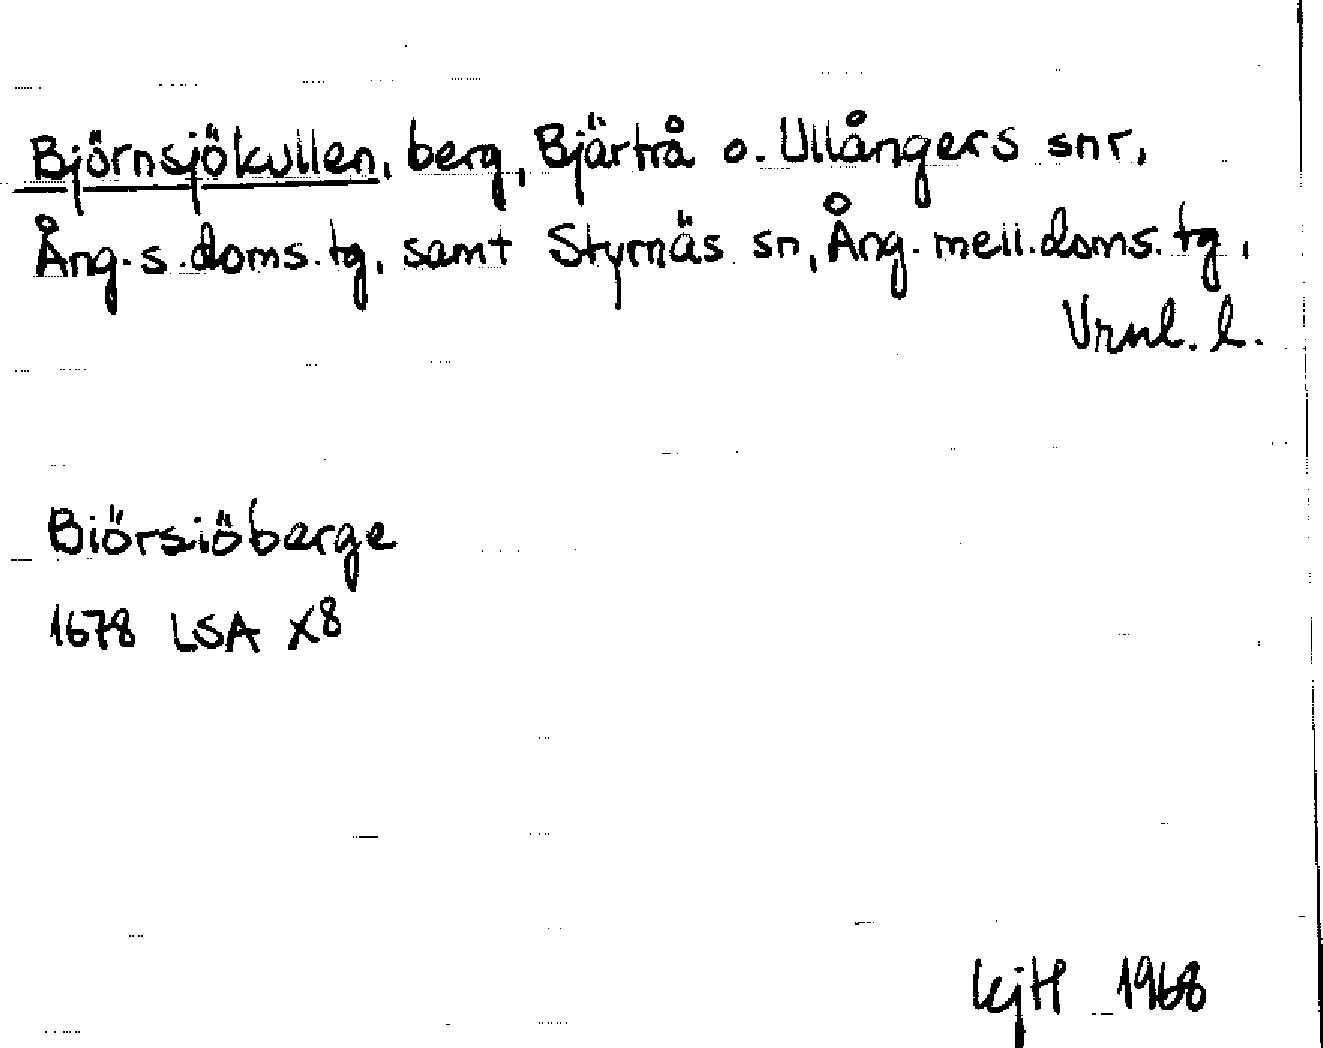 Björnsjökullen, berg, Bjärtrå o. Ullångers snr,
Ång. s. doms. tg, samt Styrnäs sn, Ång. mell. doms. tg,
Vrnl. l.
Biörsiöberge
1678 LSA X8
KjH 1968